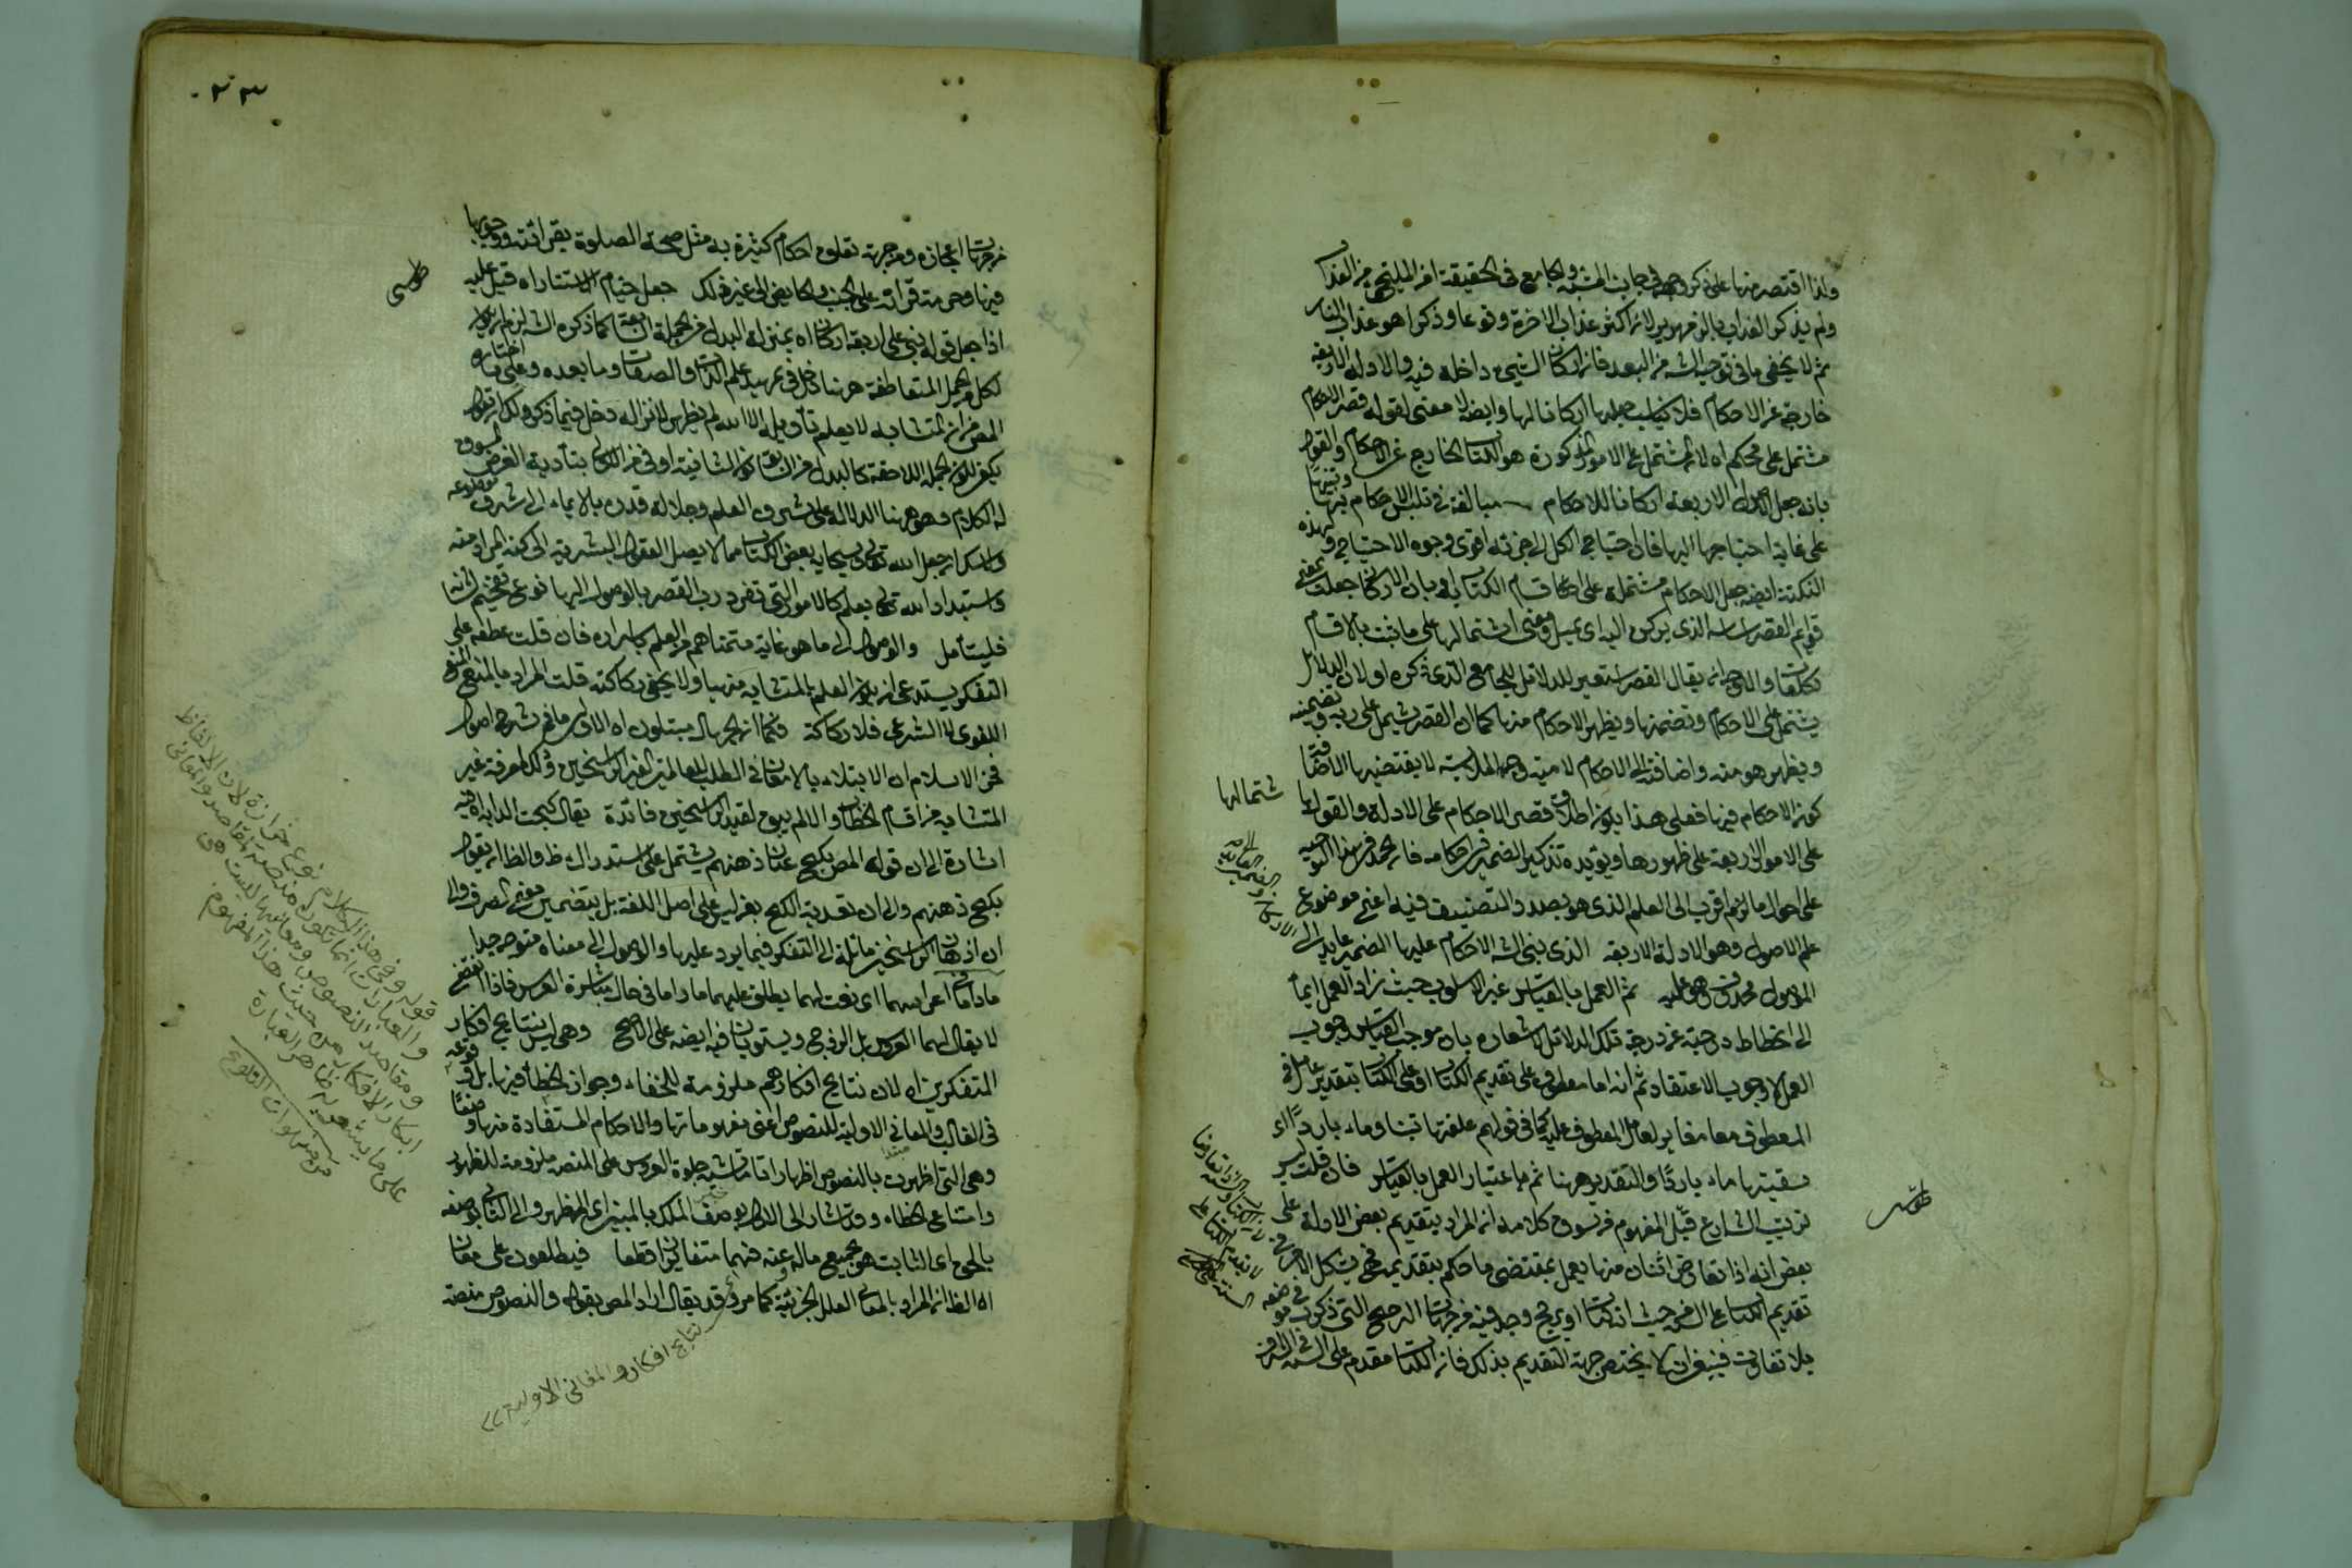 ولذا اقتصر منها على ذكر وجهه في جانب المشبه والجامع في الحقيقة امر الملتجى من العذاب
ولم يذكر العذاب بالزمهرير لانه اكثر عذاب الاخرة وقوعا وذكرا هو عذاب النار
ثم لا يخفى ما في توجيه الشه من البعد فان اركان الشيء داخلة فيه والادلة الاربعة
خارجة عن الاحكام فلا يناسب جعلها اركانا لها وايضا لا معنى لقوله قصر الاحكام
مشتمل على محكم اه لان المشتمل على الامور المذكورة هو الكتاب الخارج عن الاحكام والقول
بانه جعل الادلة الاربعة اركانا للاحكام مبالغة في تلبس الاحكام بها وتنبيها
على غاية احتياجها اليها فان احتياج الكل الى جزئه اقوى وجوه الاحتياج ولهذه
النكتة ايضا جعل الاحكام مشتملة على اقسام الكتاب او بان الاركان جعلت بمعنى
قوايم القصر اساسه الذي يركن اليه اي يميل ومعنى اشتمالها على ما ثبت بالاقسام
تكلفات والاوجه ان يقال القصر استعير للدلائل للجامع الذي ذكره اولا لان الدلائل
يشتمل على الاحكام وتضمنها ويظهر الاحكام منها كما ان القصر يشتمل على ربه وتضمنه
ويظهر هو منه واضافته الى الاحكام لامية وجه الملابسة لا يقتضيها الاضافة
كون الاحكام فيها فعلى هذا يكون اطلاق قصر الاحكام على الادلة والقول با
شتمالها
على الامور الاربعة على ظهورها ويؤيده تذكير الضمير في احكامه فانه محمد في هذا التوجيه
على احوال ما لزم اقرب الى العلم الذي هو بصدد التصنيف فيه اعني موضوع
علم الاصول وهو الادلة الاربعة الذي بنى الشه الاحكام عليها الضمير عايد الى
الموصول محذوف وهو عليه ثم العمل بالقياس غير الاسلوب حيث زاد العمل ايماء
الى انحطاط درجته عن درجة تلك الدلائل لاشعاره بان موجب القياس وجوب
العمل لا وجوب الاعتقاد ثم انه اما معطوف على تقديم الكتاب او على الكتاب بتقدير عامل في
المعطوف معا مغاير لعامل المعطوف عليه كما في قولهم علفتها تبنا وماء باردا اي
سقيتها ماء باردا والتقدير ههنا ثم ما اعتبار العمل بالقياس فان قلت ليس
ترتيب الشارع قبل المفهوم من سوق كلامه ان المراد بتقديم بعض الادلة على
بعض انه اذا تعارض اثنان منها يعمل بمقتضى ما حكم بتقديمه فح يشكل الامر في
تقديم الكتاب على السنة حيث انه كتاب او يرجح وجد فيه من جهات الترجيح التي ذكرت في موضعه
بلا تفاوت فينبغي ان لا يختص جهة التقديم بذلك فان الكتاب مقدم على السنة في الشرف
طوسى
من جهات اعجازه ومن جهة تعلق احكام كثيرة به مثل صحة الصلوة بقرائته ووجوبها
فيها وحرمة قرائته على الجنب والحايض الى غير ذلك جعل ختام الاستتار اه قيل عليه
اذا جعل قوله بنى على اربعة اركان اه بمنزلة البدل من الجملة السابقة كما ذكره الشه لزم ان يكون
لكل من الجمل المتعاطفة ههنا دخل في تمهيد علم الذات والصفات وما بعده وعلى ما اختاره
المص من ان المتشابه لا يعلم تأويله الا الله لم يظهر لانزاله دخل فيما ذكر ولك ان تقول
يكفي لكون الجملة اللاحقة كالبدل من السابقة كون الثانية اوفى من الاولى بتأدية الغرض المسوق
له الكلام وهو ههنا الدلالة على شرف العلم وجلالة قدره بالايماء الى شرف موضوعه
ولا شك ان جعل الله تعالى سبحانه بعض الكتاب مما لا يصل العقول البشرية الى كنه المراد منه
واستبداد الله تعالى بعلمه كالامور التي تفرد رب القصر بالوصول اليها نوع تفخيم لشأنه
فليتأمل والوصول الى ما هو غاية متمناهم من العلم باسراره فان قلت عطفه على
التفكر يستدعي ان يكون العلم بالمتشابه منهيا ولا يخفى ركاكته قلت المراد بالمنع المنع
اللغوي لا الشرعي فلا ركاكة فكما ان الجهال مبتلون اه الاولى ما في شرح اصول
فخر الاسلام ان الابتلاء بالامعان في الطلب للعالمين الغير الراسخين وذلك لمعرفة غير
المتشابه من اقسام الخطاب والا لم يبق لقيد الراسخين فائدة يقال كبحت الدابة اه فيه
اشارة الى ان قوله المص بكبح عنان ذهنهم يشتمل على استدراك ظ والظا ان يقول
بكبح ذهنهم والى ان تعدية الكبح بعن ليس على اصل اللغة بل بتضمين معنى الصرف والى
ان اذهان الراسخين مائلة الى التفكر فيما يرد عليها والوصول الى معناه متوجه جدا
ماداما في اعراسهما اي نعت لهما يطلق عليهما ماداما في حال مباشرة العرس فاذا انقضى
لا يقال لهما العروس بل الزوج ويستويان فيه ايضا على الاصح وهي ليس نتايج افكار
المتفكرين اه لان نتايج افكارهم ملزومة للخفاء وجواز الخطأ فيها بل وقوعه
في الغالب والمعاني الاولية للنصوص اعني مفهوماتها والاحكام المستفادة منها وضعا
وهي التي اظهرت بالنصوص اظهارا تاما شبه جلوة العروس على المنصة ملزومة للظهور
وامتناع الخطاء وقد اشار الى الاول بوصف الملك بالمبين اي المظهر والى الثاني بوصفه
بالحق اي الثابت هو بجميع ماله وعنه فهما متغايران قطعا فيطلعون على معان
اه الظ ان المراد بالمعاني العلل الجزئية كما مر وقد يقال اراد المص بقوله والنصوص منصة
نتايج افكار والمعاني الاولية
طوسى
قوله وفي هذا الكلام نوع حزازة لان الالفاظ
والعبارات انما تكون منصة للمقاصد والمعاني
ومقاصد النصوص ومعانيها ليست هي
ابكار الافكار من حيث هذا المفهوم
على ما يشعر به ظاهر العبارة
من منهوات التلويح